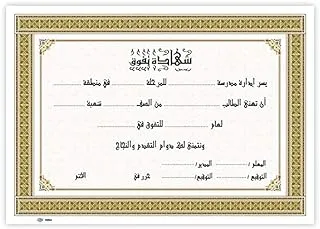 شهادة تفوق
يسر إدارة مدرسة .......... للمرحلة .......... في منطقة ..........
أن تهنئ الطالب .......... من الصف .......... شعبة ..........
لعام .......... للتفوق في ..........
ونتمنى له دوام التقدم والنجاح
المعلم / .......... المدير / ..........
التوقيع / .......... التوقيع / .......... حرر في .......... الختم